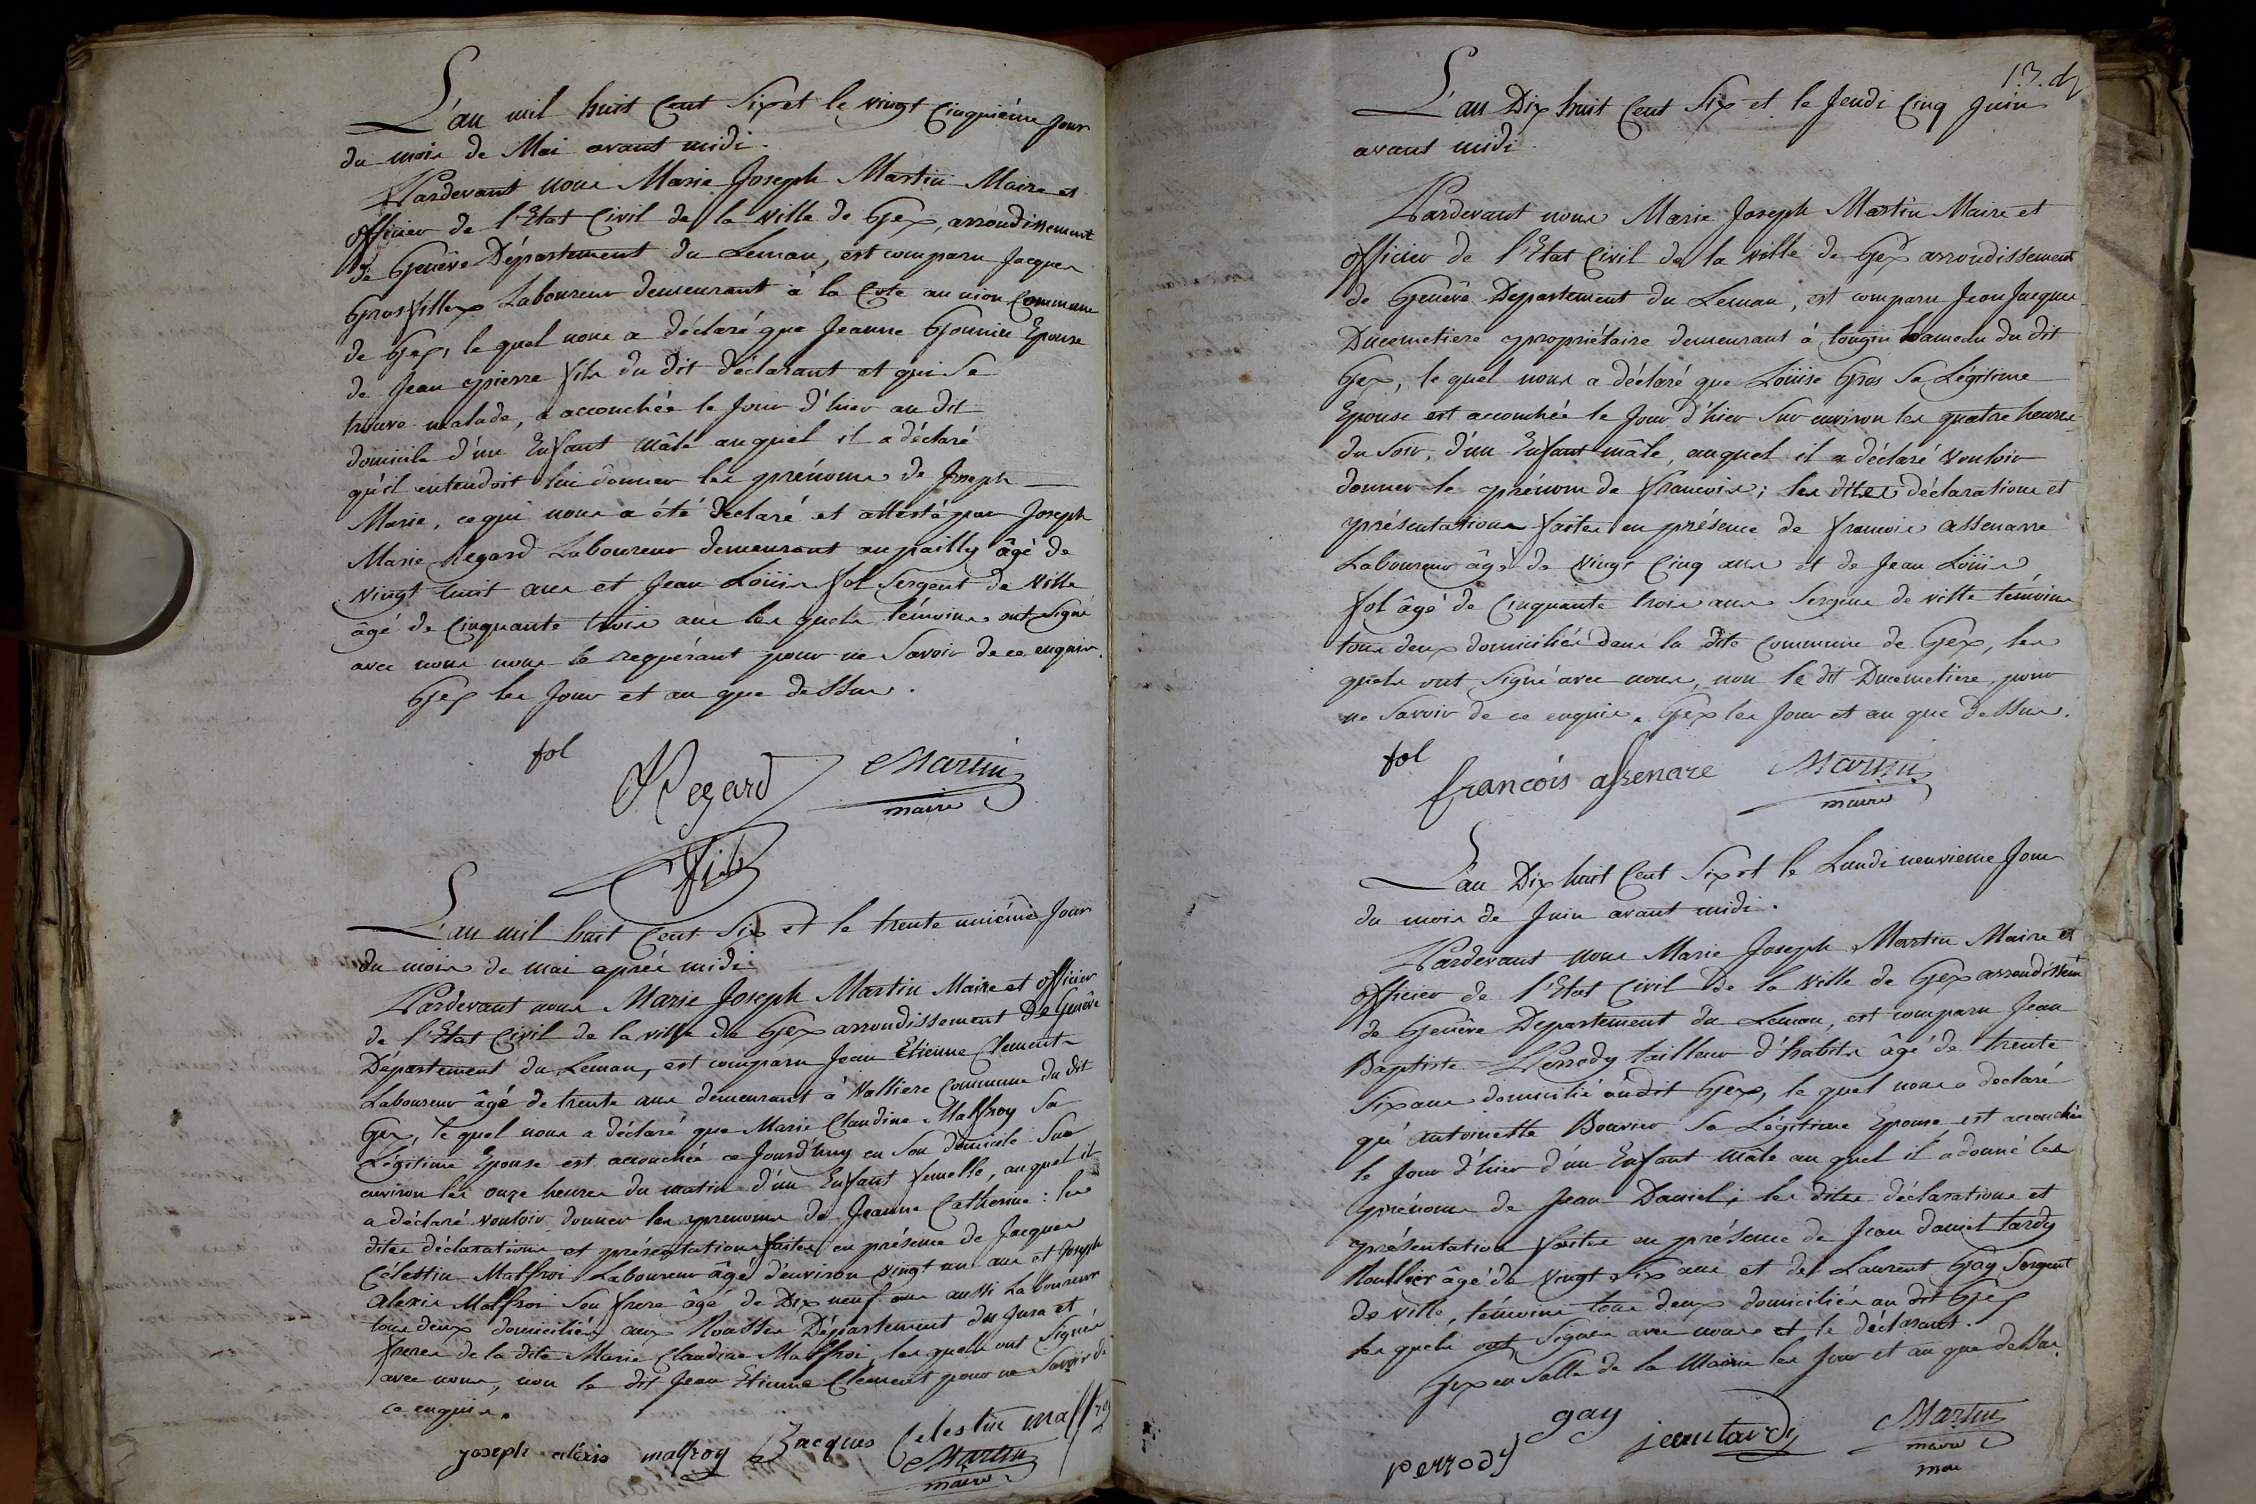 L'an mil huit Cent Six et le vingt Cinquiéme Jour
du mois de Mai avant midi.
Pardevant nous Marie Joseph Martin Maire et
officier de l'Etat Civil de la ville de Gex, arrondissement
de Genêve Département du Leman, est comparu Jacques
Grosfillex Laboureur demeurant à la Cote au nion Commune
de Gex, le quel nous a déclaré que Jeanne Gounin Epouse
de Jean pierre fils du dit déclarant et qui Se
trouve malade, a accouchée le Jour d'hier au dit
domicile d'un Enfant mâle auquel il a déclaré
qu'il entendoit lui donner les prénoms de Joseph
Marie, ce qui nous a été déclaré et attesté par Joseph
Marie Regard Laboureur demeurant au pailly âgé de
vingt huit ans et Jean Loüis fol Sergent de ville
âgé de Cinquante trois ans les quels témoins ont Signé
avec nous non le requérant pour ne Savoir de ce enquis.
Gex les Jour et an que dessus.
fol
JRegard Martin
maire
fils
L'an mil huit Cent Six et le trente uniéme Jour
du mois de mai après midi
Pardevant nous Marie Joseph Martin Maire et officier
de l'Etat Civil de la ville de Gex arrondissement de Genêve
Département du Leman, est comparu Jean Etienne Clement
Laboureur âgé de trente ans demeurant à Valliere Commune du dit
Gex, le quel nous a déclaré que Marie Claudine Malfroy Sa
Légitime Epouse est accouchée ce Jourd'huy en Son domicile Sur
environ les onze heures du matin d'un Enfant femelle, au quel il
a déclaré vouloir donner les prenoms de Jeanne Catherine : les
dites déclarations et présentations faites en présence de Jacques
Célestin Malfroi Laboureur âgé d'environ vingt un ans et Joseph
Alexis Malfroi Son frere âgé de Dix neuf ans aussi Laboureur
tous deux domiciliés aux Rousses Département du Jura et
freres de la dite Marie Claudine Malfroi, les quels ont Signés
avec nous, non le dit Jean Etienne Clement pour ne Savoir de
ce enquis.
joseph alexis malfroy Jacques Celestin malfroy
Martin
maire
13. d
L'an Dix huit Cent Six et le Jeudi Cinq Juin
avant midi.
Pardevant nous Marie Joseph Martin Maire et
officier de l'Etat Civil de la ville de Gex arrondissement
de Genêve Departement du Leman, est comparu Jean Jacques
Ducimetiere propriétaire demeurant à tougin hameau du dit
Gex, le quel nous a déclaré que Loüise Gros Sa Légitime
Epouse est accouchée le Jour d'hier Sur environ les quatre heures
du Soir, d'un Enfant mâle, auquel il a déclaré vouloir
donner le prénom de francois; les dites déclarations et
présentations faites en présence de francois assenarre
Laboureur âgé de vingt Cinq ans et de Jean Loüis
fol âgé de Cinquante trois ans Sergent de ville témoins
tous deux domiciliés dans la dite Commune de Gex, les
quels ont Signé avec nous, non le dit Ducimetiere, pour
ne Savoir de ce enquis. Gex les Jour et an que dessus.
fol
françois assenare Martin
maire
L'an Dix huit Cent Six et le Lundi neuvieme Jour
du mois de Juin avant midi.
Pardevant nous Marie Joseph Martin Maire et
officier de l'Etat Civil de la ville de Gex arrondissemt
de Genêve Departement du Leman, est comparu Jean
Baptiste Perrody tailleur d'habits âgé de trente
Six ans domicilié audit Gex, le quel nous a declaré
qu'antoinette Bouvier Sa Légitime Epouse est accouchée
le Jour d'hier d'un Enfant mâle au quel il a donné les
prénoms de Jean Daniel; les dites déclarations et
présentation faites en présence de Jean daniel tardy
âgé de vingt Six ans et de Laurent Gay Sergent
de ville, témoins tous deux domiciliés au dit Gex
les quels ont Signés avec nous et le déclarant.
Gex en Salle de la Mairie les Jour et an que dessus.
gay
perrody jean tardy Martin
maire
mai